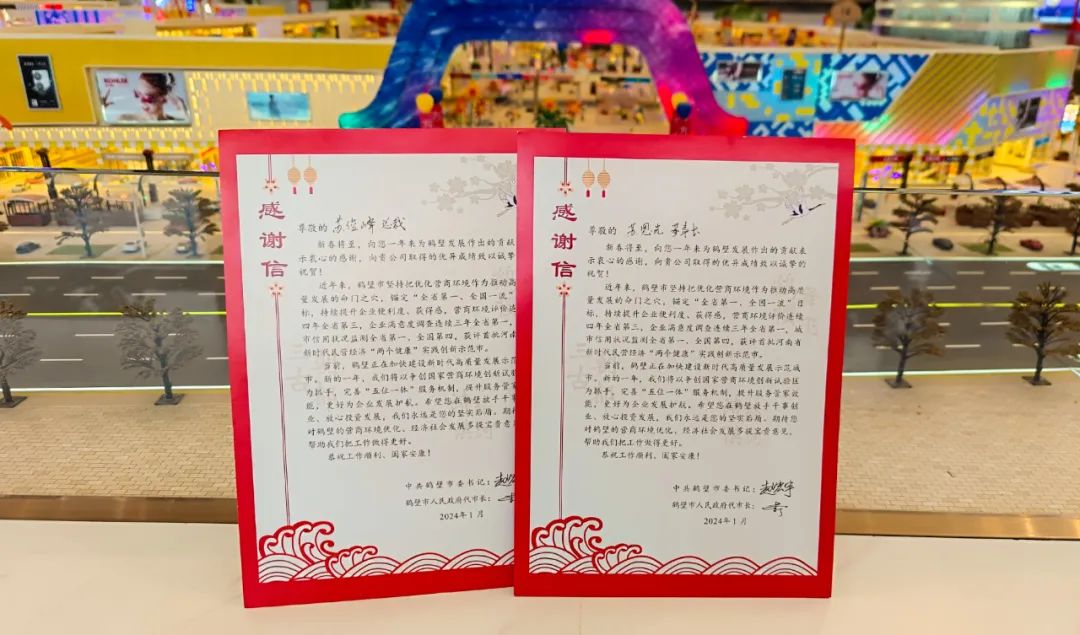 KOHLER
感谢信
尊敬的 总裁
新春将至,向您一年来为鹤壁发展作出的贡献
示衷心的感谢,向贵公司取得的优异成绩致以诚挚的
祝贺!
近年来,鹤壁市坚持把优化营商环境作为推动高
量发展的命门之穴,锚定“全省第一、全国一流”
标,持续提升企业便利度、获得感,营商环境评价连
四年全省第三,企业满意度调查连续三年全省第一,
市信用状况监测全省第一、全国第四,获评首批河南
新时代民营经济“两个健康”实践创新示范市。
当前,鹤壁正在加快建设新时代高质量发展示范
市。新的一年,我们将以争创国家营商环境创新试验
为抓手,完善“五位一体”服务机制,提升服务管家
能,更好为企业发展护航。希望您在鹤壁放手干事
业、放心投资发展,我们永远是您的坚实后盾。期待
对鹤壁的营商环境优化、经济社会发展多提宝贵意
帮助我们把工作做得更好。
恭祝工作顺利、阖家安康!
中共鹤壁市委书记:
鹤壁市人民政府代市长:
2024年1月
感谢信
尊敬的 董事长
新春将至,向您一年来为鹤壁发展作出的贡献表
示衷心的感谢,向贵公司取得的优异成绩致以诚挚的
祝贺!
近年来,鹤壁市坚持把优化营商环境作为推动高质
量发展的命门之穴,锚定“全省第一、全国一流”目
标,持续提升企业便利度、获得感,营商环境评价连续
四年全省第三,企业满意度调查连续三年全省第一,城
市信用状况监测全省第一、全国第四,获评首批河南省
新时代民营经济“两个健康”实践创新示范市。
当前,鹤壁正在加快建设新时代高质量发展示范城
市。新的一年,我们将以争创国家营商环境创新试验区
为抓手,完善“五位一体”服务机制,提升服务管家效
能,更好为企业发展护航。希望您在鹤壁放手干事创
业、放心投资发展,我们永远是您的坚实后盾。期待您
对鹤壁的营商环境优化、经济社会发展多提宝贵意见,
帮助我们把工作做得更好。
恭祝工作顺利、阖家安康!
中共鹤壁市委书记:
鹤壁市人民政府代市长:
2024年1月